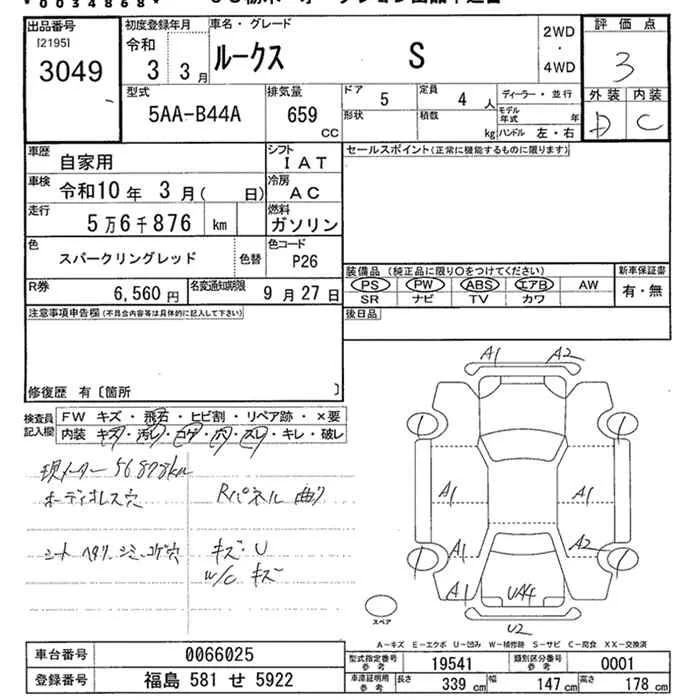 *0034868*
出品番号 初度登録年月 車名・グレード 2WD ・ 4WD 評価点
[2195]
3049 令和 3 3月 ルークス S 3
型式 5AA-B44A 排気量 659 CC ドア 5 定員 4人 ディーラー・並行 外装 内装
形状 積載 kg モデル年式 年 ハンドル 左・右 D C
車歴 自家用 シフト IAT セールスポイント(正常に機能するものに限ります)
車検 令和10年 3月( 日) 冷房 AC
走行 5万6千876 km 燃料 ガソリン
色 スパークリングレッド 色替 色コード P26
装備品(純正品に限り○をつけてください) 新車保証書
R券 6,560円 名変通知期限 9月27日 PS PW ABS エアB AW 有・無
SR ナビ TV カワ
注意事項申告欄(不具合内容等は具体的に記入して下さい) 後日品
修復歴 有〔箇所 〕
検査員記入欄 FW キズ・飛石・ヒビ割・リペア跡・×要
内装 キズ・汚レ・コゲ・穴・スレ・キレ・破レ
現メーター 56878km
オーディオレス穴 Rパネル 曲り
シート ヘタリ シミ コゲ穴 キズ・U
W/C キズ
A1 A2
A1 A1
A1 A2
A1 UA4
U2
スペア
A-キズ E-エクボ U-凹み W-補修跡 S-サビ C-腐食 XX-交換済
車台番号 0066025 型式指定番号 参考 19541 類別区分番号 参考 0001
登録番号 福島 581 せ 5922 車庫証明用 参考 長さ 339 cm 幅 147 cm 高さ 178 cm